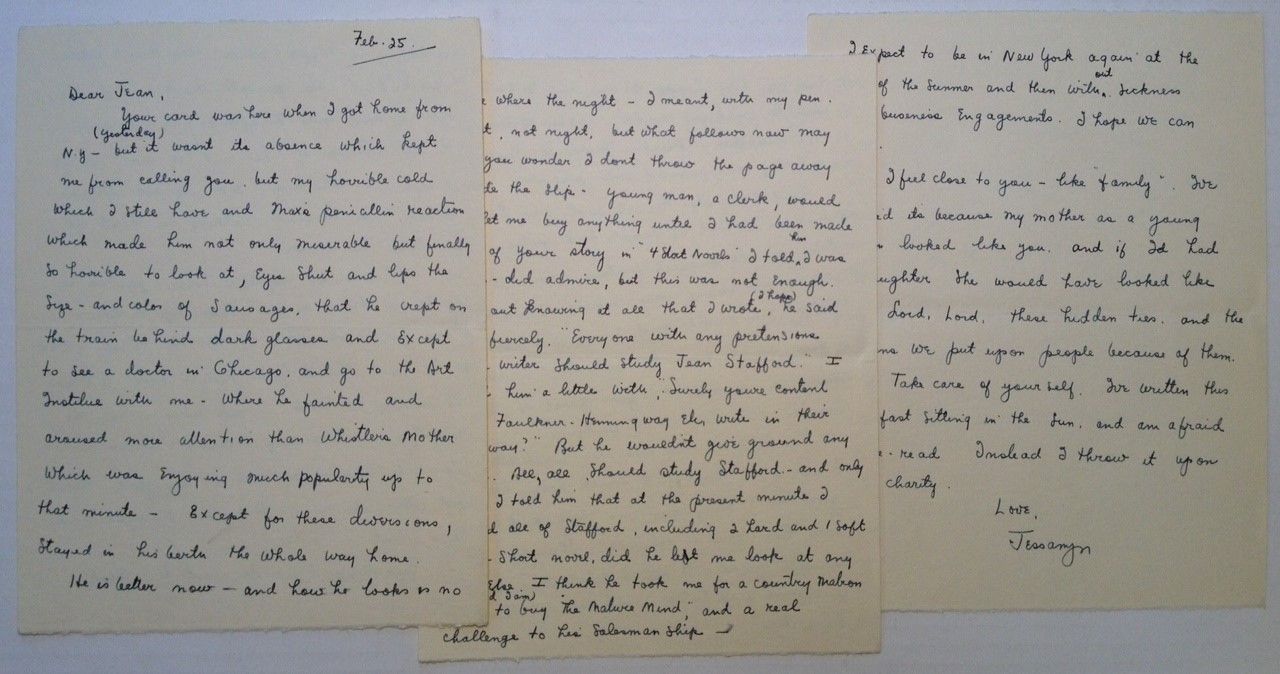 Feb. 25.
Dear Jean,
Your card was here when I got home from
(yesterday)
N.Y – but it wasnt its absence which kept
me from calling you. but my horrible cold
which I still have and Max's penicillin reaction
which made him not only miserable but finally
so horrible to look at, Eyes shut and lips the
size – and color of sausages, that he crept on
the train behind dark glasses and Except
to see a doctor in Chicago, and go to the Art
Institue with me – where he fainted and
aroused more attention than Whistler's Mother
which was Enjoying much popularity up to
that minute – Except for these diversions,
stayed in his berth the whole way home.
He is better now – and how he looks is no
where the night – I meant, with my pen.
, not night, but what follows now may
you wonder I dont throw the page away
the slip – young man, a clerk, would
let me buy anything until I had been made
of your story in "4 Short Novels" I told him I was
– did admire, but this was not Enough.
out knowing at all that I wrote, (I hope) he said
fiercely. "Everyone with any pretensions
writer should study Jean Stafford." I
him a little with, "Surely you're content
Faulkner – Hemingway Etc, write in their
way?" But he wouldn't give ground any
. All, all should study Stafford – and only
I told him that at the present minute I
all of Stafford, including 2 hard and 1 soft
short novel, did he let me look at any
Else. I think he took me for a country matron
I am)
to buy "The Mature Mind", and a real
challenge to his salesmanship –
I Expect to be in New York again at the
of the summer and then without sickness
business Engagements. I hope we can
.
I feel close to you – like "family". I've
its because my mother as a young
looked like you. and if I'd had
she would have looked like
Lord, Lord, these hidden ties. and the
we put upon people because of them.
Take care of yourself. I've written this
fast sitting in the sun. and am afraid
- read Instead I throw it upon
charity.
Love,
Jessamyn